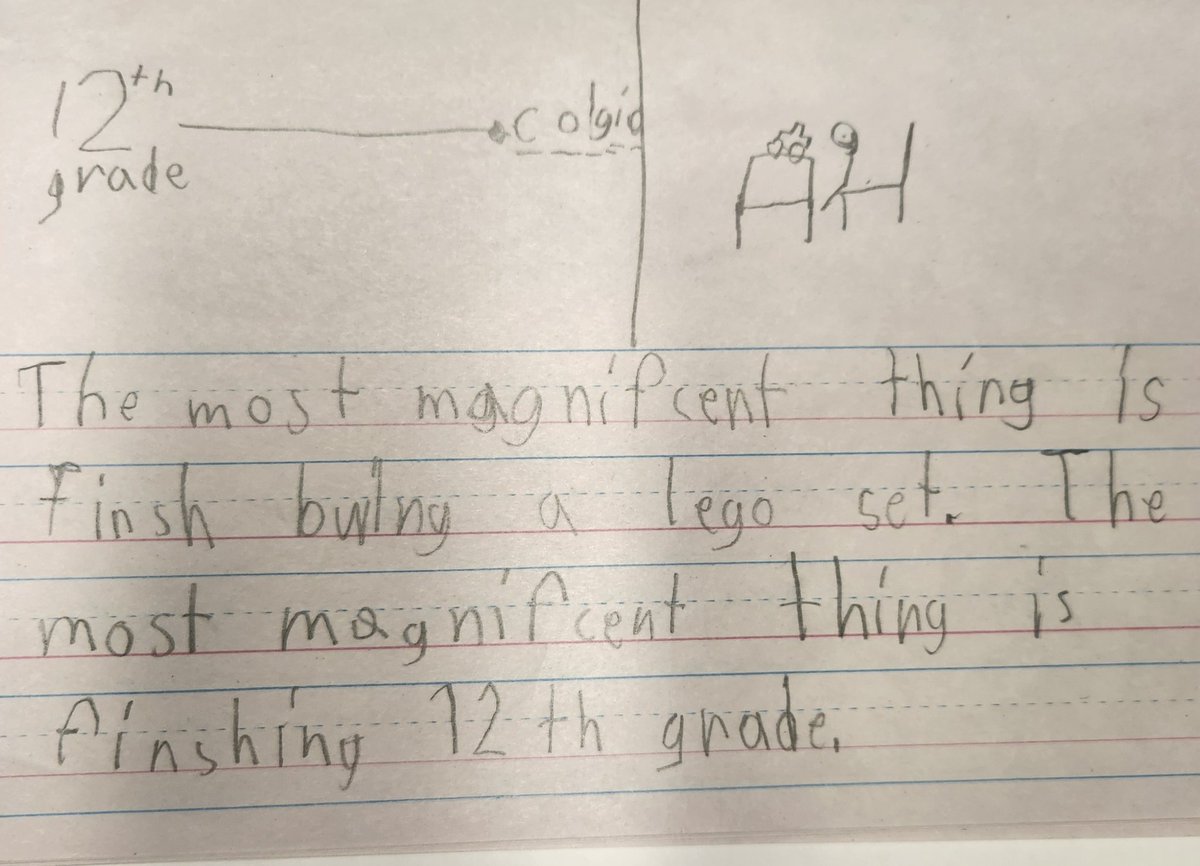 12th
grade
colgid
The most magnifcent thing is
finsh bwlng a lego set. The
most magnifcent thing is
finshing 12th grade.